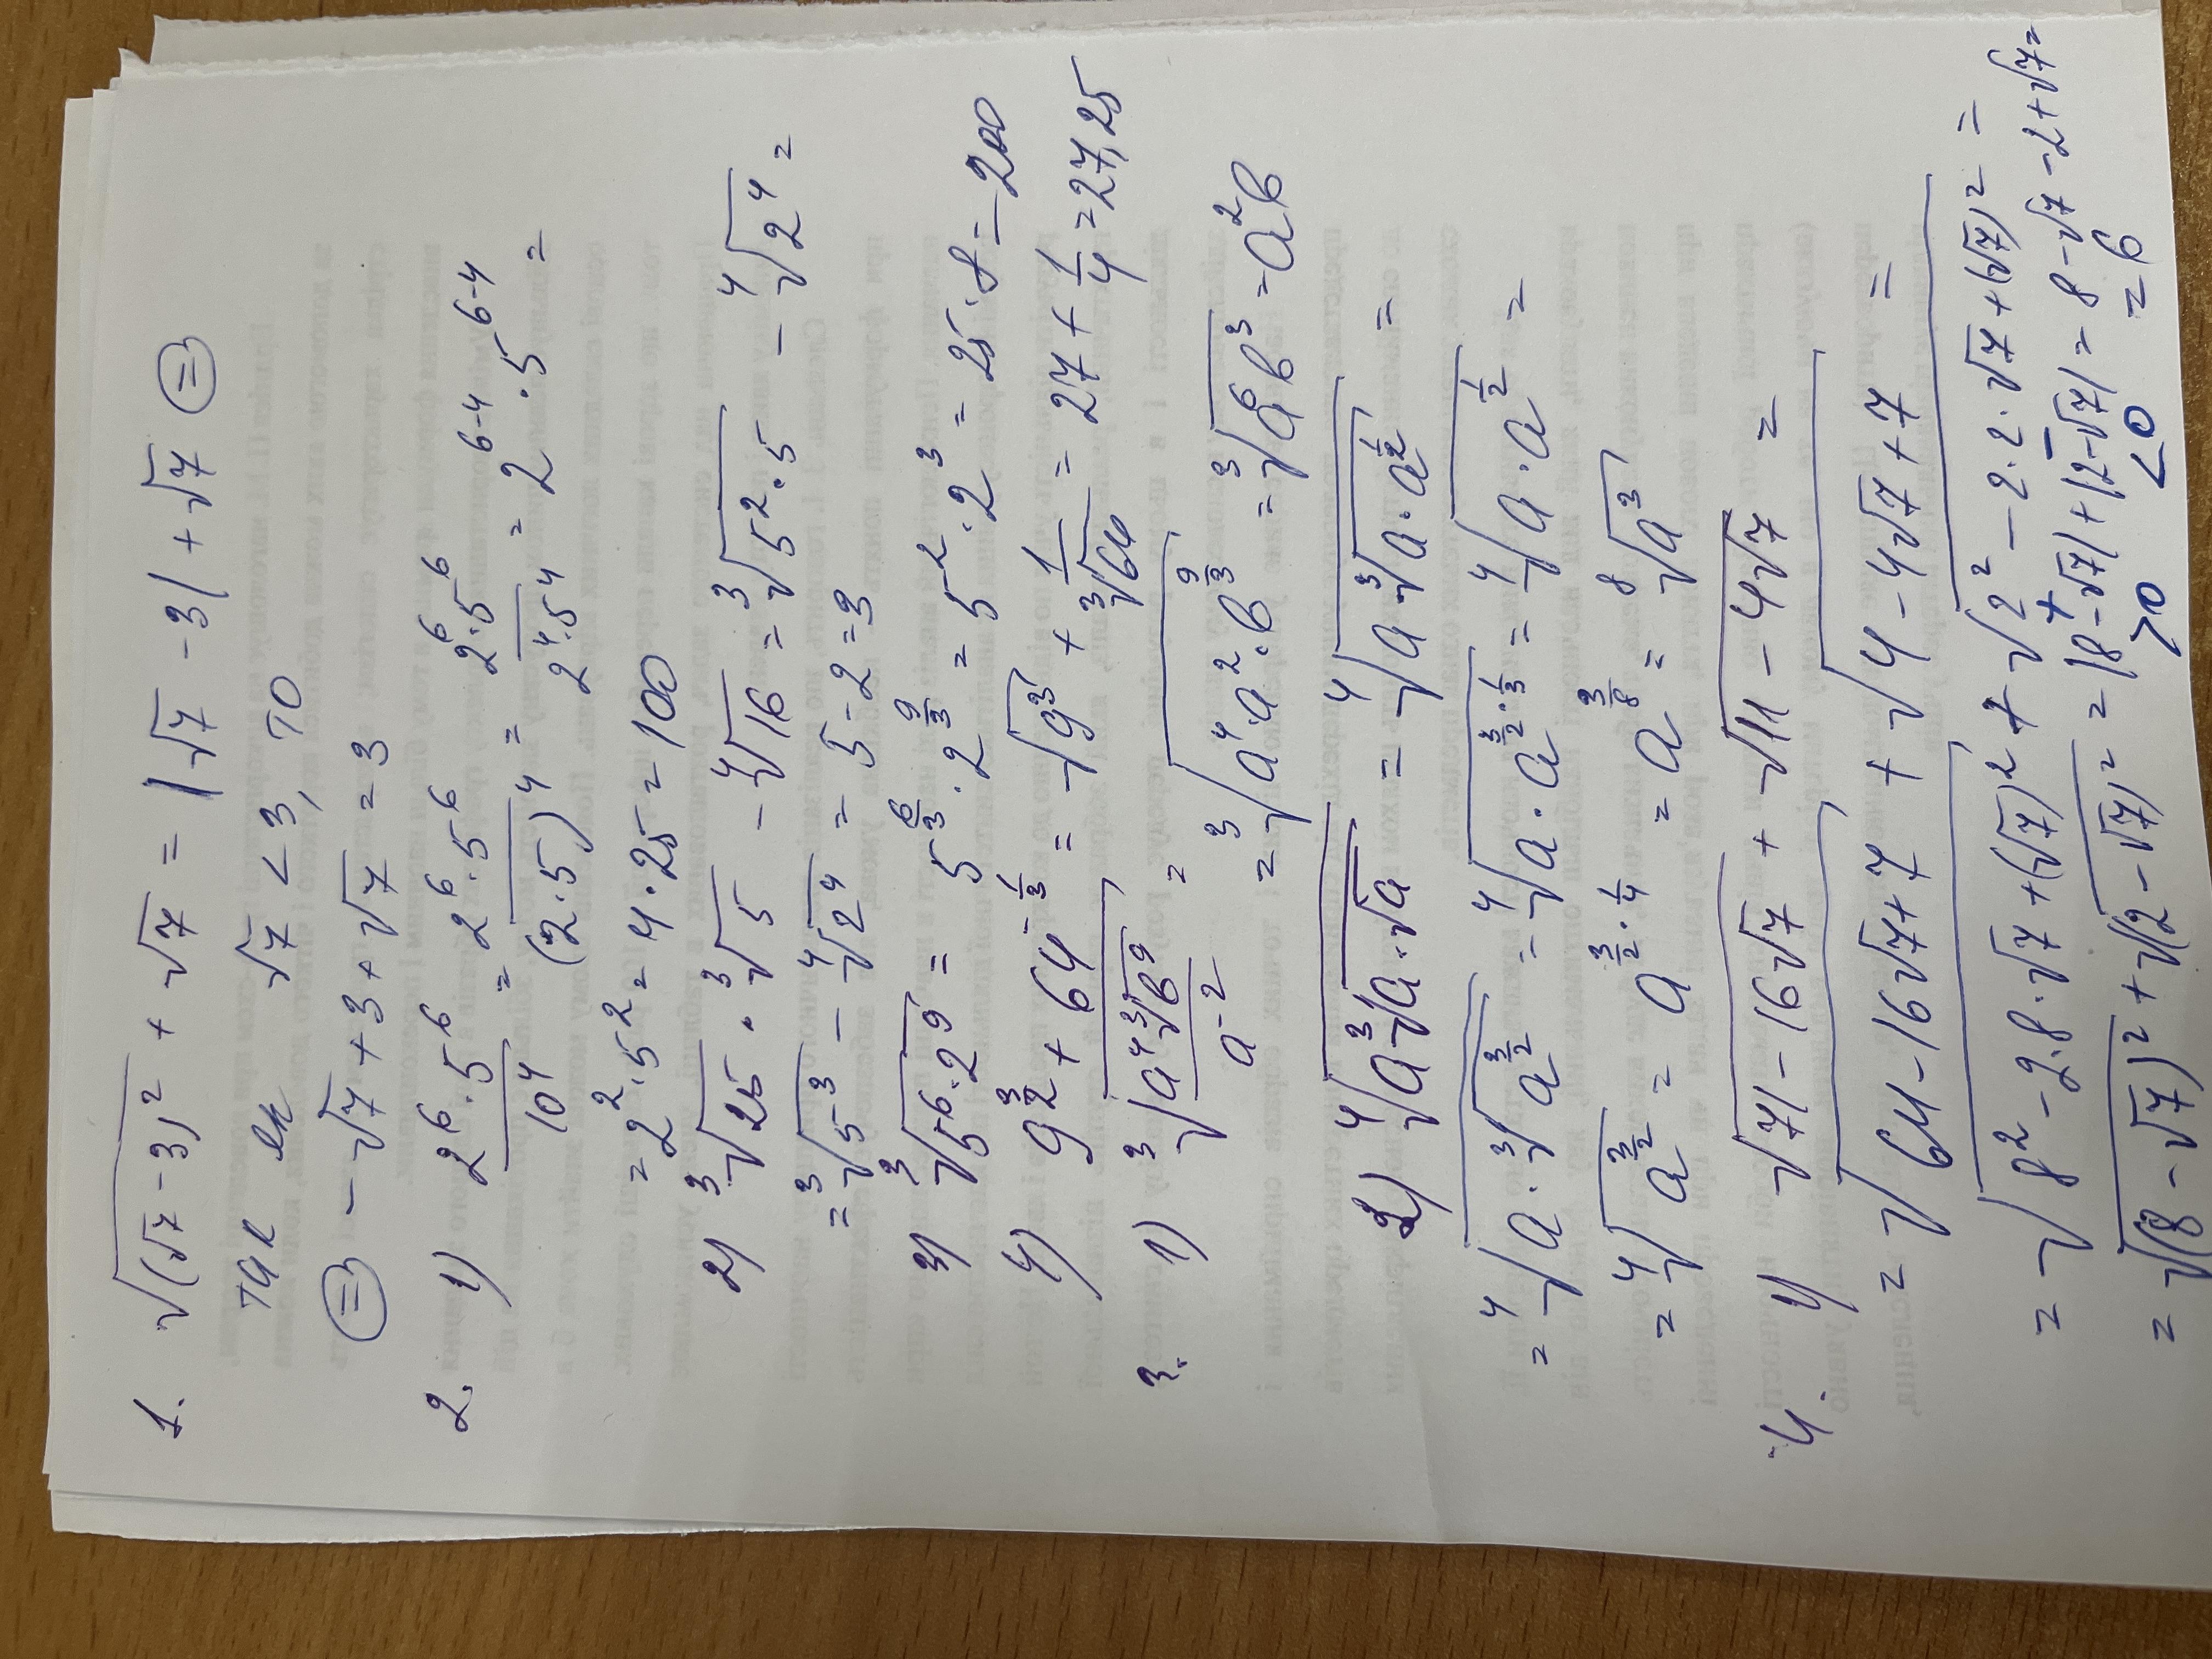 1. √((√7 - 3)²) + √7 = |√7 - 3| + √7 ⊜
так як √7 < 3, то
⊜ - √7 + 3 + √7 = 3
2. 1) (2⁶·5⁶)/10⁴ = (2⁶·5⁶)/(2·5)⁴ = (2⁶·5⁶)/(2⁴·5⁴) = 2⁶⁻⁴·5⁶⁻⁴ =
= 2²·5² = 4·25 = 100
2) ³√25 · ³√5 - ⁴√16 = ³√(5²·5) - ⁴√(2⁴) =
= ³√(5³) - ⁴√(2⁴) = 5 - 2 = 3
3) ³√(5⁶·2⁹) = 5^(6/3)·2^(9/3) = 5²·2³ = 25·8 = 200
4) 9^(3/2) + 64^(-1/3) = √(9³) + 1/³√64 = 27 + 1/4 = 27,25
3. 1) ³√((a⁴ ³√(b⁹))/a⁻²) = ³√(a⁴·a²·b^(9/3)) = ³√(a⁶b³) = a²b
2) ⁴√(a ³√(a·√a)) = ⁴√(a·³√(a·a^(1/2))) =
= ⁴√(a·³√(a^(3/2))) = ⁴√(a·a^(3/2·1/3)) = ⁴√(a·a^(1/2)) =
= ⁴√(a^(3/2)) = a^(3/2·1/4) = a^(3/8) = ⁸√(a³)
4. 1) √(71 - 16√7) + √(11 - 4√7) =
= √(64 - 16√7 + 7) + √(4 - 4√7 + 7) =
= √(8² - 2·8·√7 + (√7)²) + √(2² - 2·2·√7 + (√7)²) =
= √((8 - √7)²) + √((2 - √7)²) = |8 - √7| + |2 - √7| = 8 - √7 - 2 + √7 =
>0 <0 = 6